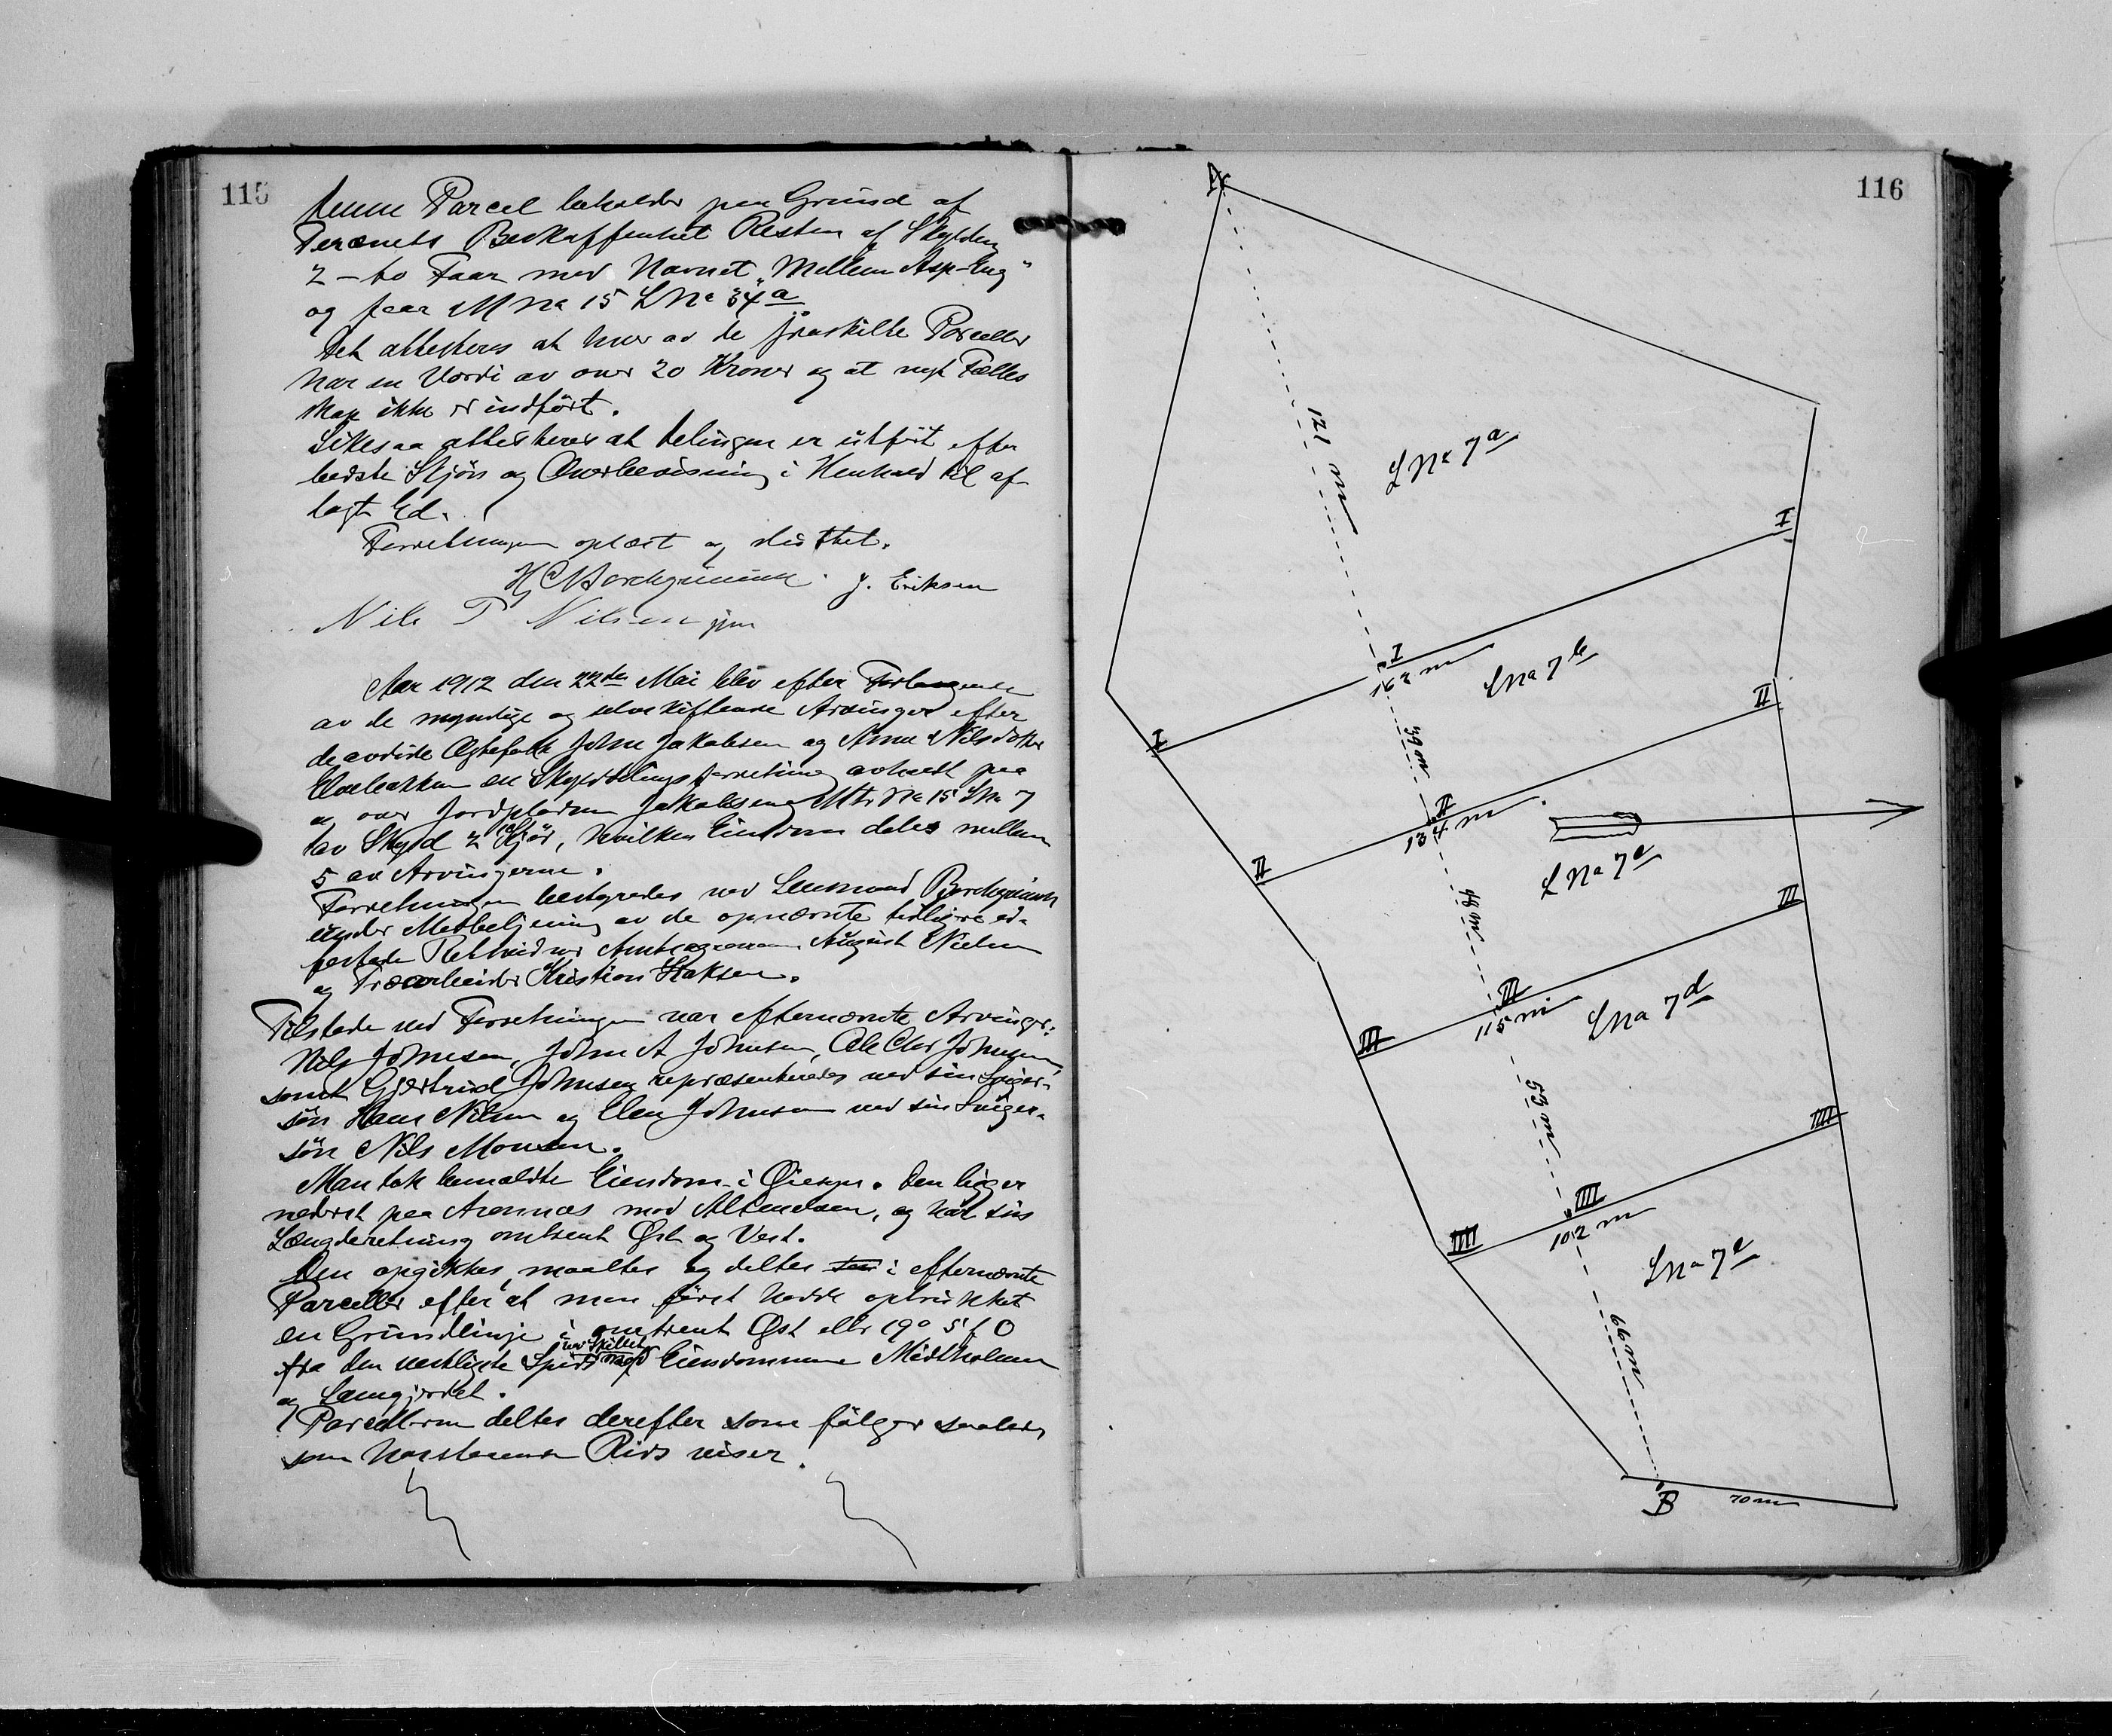 115
Denne Parcel beholder paa Grund af
Terænets Beskaffenhet Resten af Skylden
2 – to Faar med Navnet „Mellem Asp-Eng"
og faar M No 15 L No 34a
Det attesteres at hver av de fraskilte Parceller
har en Værdi av over 20 Kroner og at nyt Fælles
skap ikke er indført.
Likesaa attesteres at delingen er utført efter
bedste Skjøn og Overbevisning i Henhold til af
lagt Ed.
Forretningen oplæst og sluttet.
H C Borchgrevink. J. Eriksen
Nils P Nilsen jun
Aar 1912 den 22den Mai blev efter Forlangende
av de myndige og selvskiftende Arvinger efter
de avdøde Ægtefolk John Jakobsen og Anne Nilsdatter
Elvebakken en Skylddelingsforretning avholdt paa
og over Jordpladsen Jakobseng Mtr No 15 L No 7
av Skyld 2 Kjør, hvilken Eiendom deles mellem
5 av Arvingerne.
Forretningen bestyredes ved Lensmand Borchgrevink
under Medbetjening av de opnævnte tidligere ed-
fæstede Retsvidner Amtsagronom August Nielsen
og Træarbeider Kristian Isaksen.
Tilstede ved Forretningen var efternævnte Arvinger:
Nils Johnsen, John A Johnsen, Ole Chr Johnsen
samt Gjertrud Johnsen repræsenteredes ved sin Sviger-
søn Hans Nilsen og Elen Johnsen ved sin Sviger-
søn Nils Monsen.
Man tok bemeldte Eiendom i Øiesyn. Den ligger
nederst paa Aronnæs mod Altenelven, og har sin
Længderetning omtrent Øst og Vest.
Den opgikkes, maaltes og deltes i efternævnte
Parceller efter at man først hadde optrukket
en Grundlinje i omtrent Øst eller 19° S t O
fra den vestligste Spids ved Skillet mot Eiendommene Midtholmen
og Langjordet.
Parcellerne deltes derefter som følger saaledes
som hosstaaende Rids viser.
116
A
121 m
L No 7a
I
I
162 m
L No 7b
I
II
39 m
II
134 m
II
L No 7c
44 m
III
III
115 m
L No 7d
III
53 m
IIII
IIII
102 m
IIII
L No 7e
66 m
B
70 m